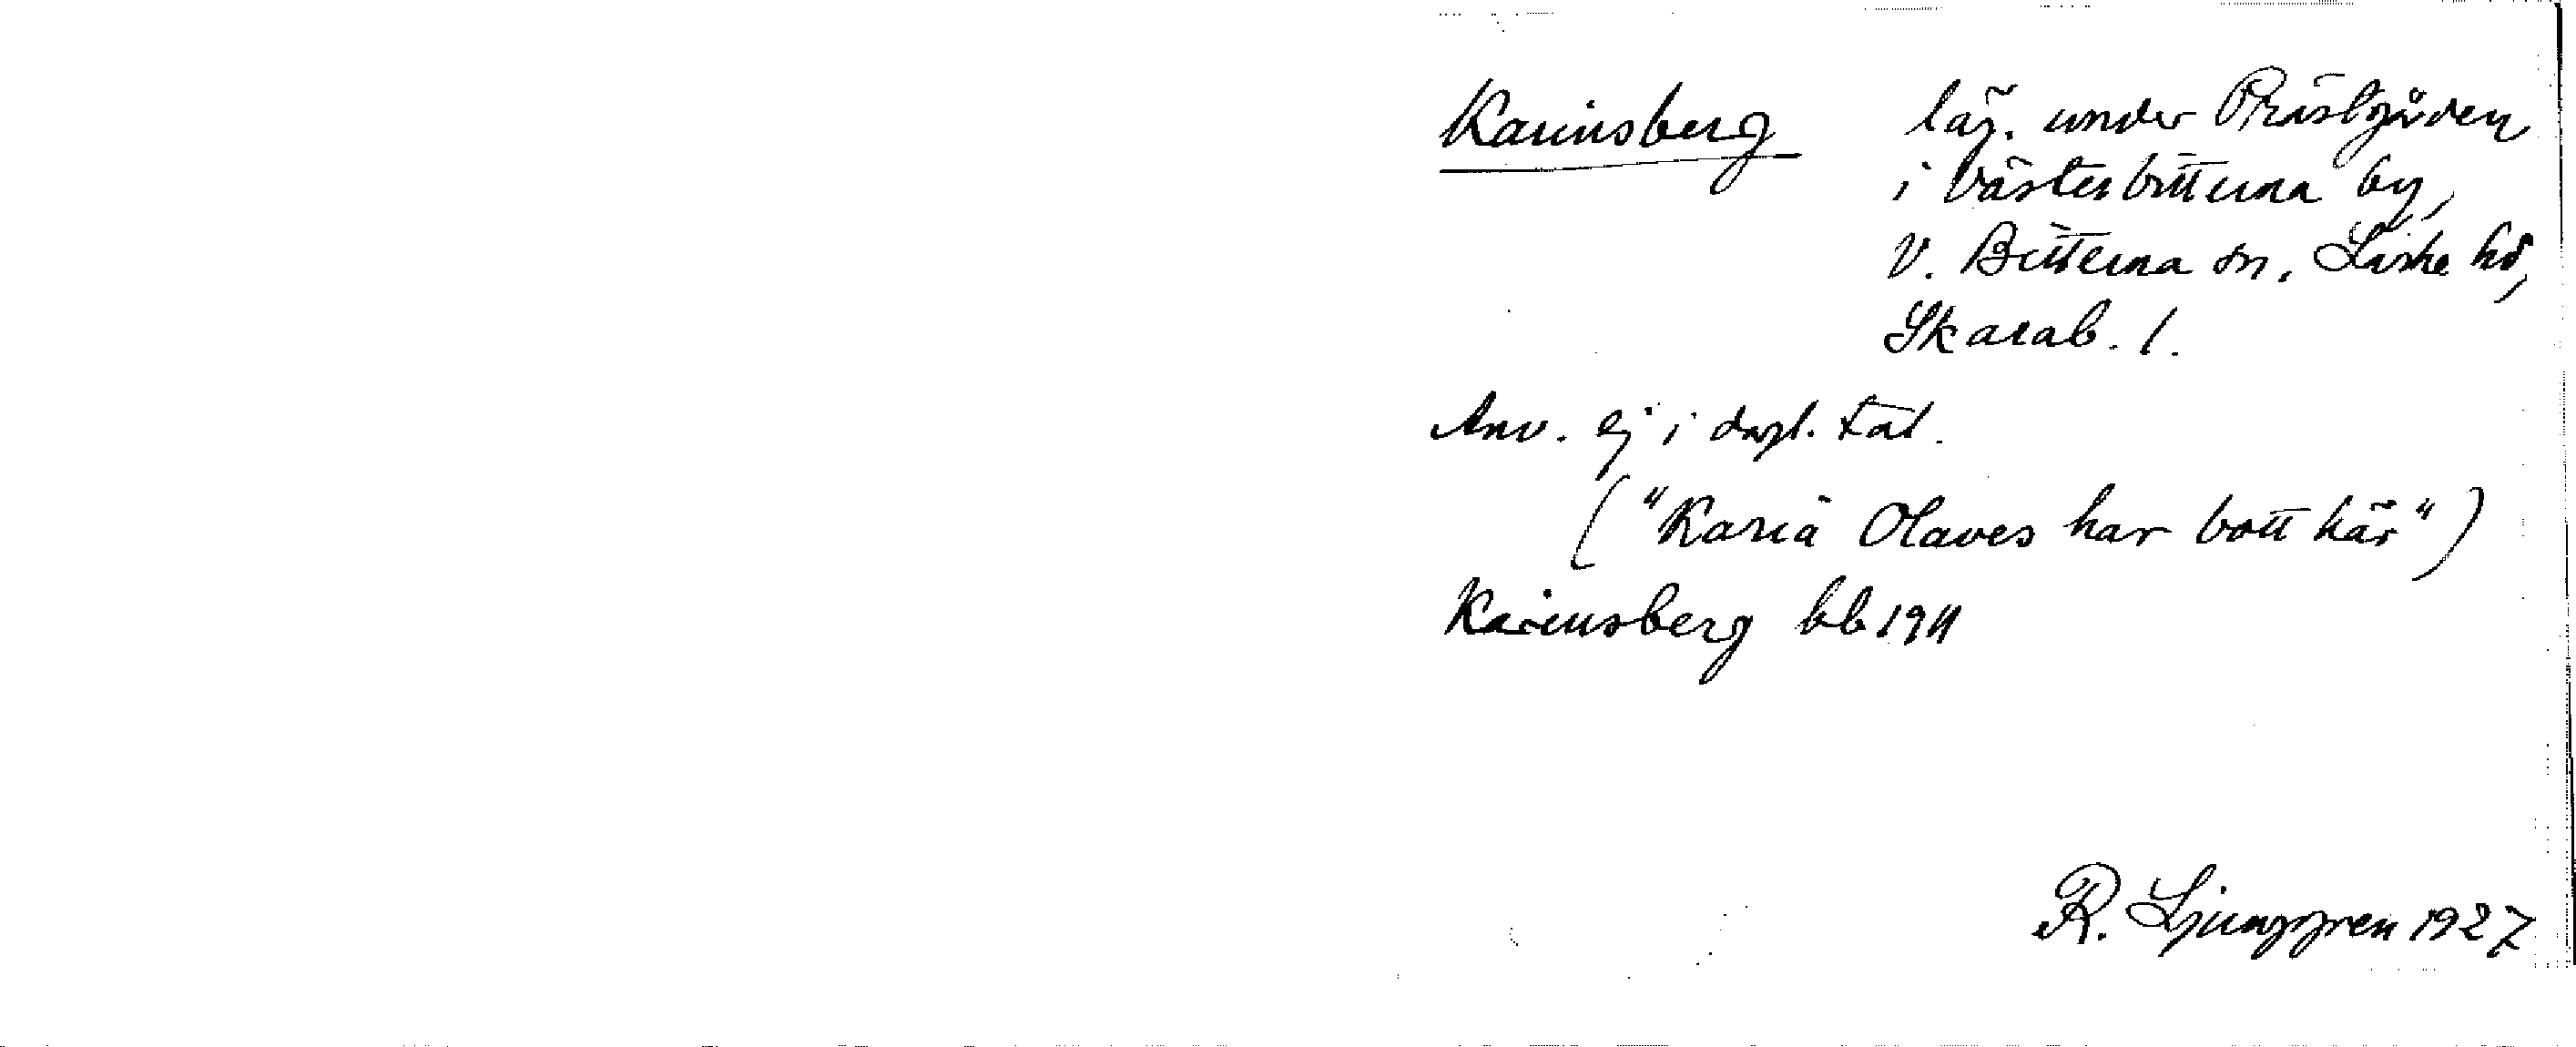 Karinsberg läg. under Prästgården
i Västerbitterna by,
V. Bitterna sn, Laske hd,
Skarab. l.
Anv. ej i dagl. tal.
("Karia Olaves har bott här")
Karinsberg kb 1911
R. Ljunggren 1927